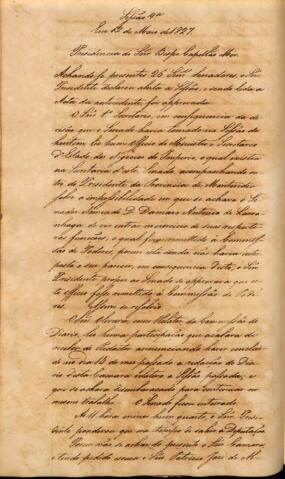 Sessão 4ª
Em 5 de Maio de 1827.
Presidencia do Snr. Bispo Capellão Mór.
Achando-se presentes 26 Snrs. Senadores, o Snr.
Presidente declarou aberta a Sessão, e sendo lida a
Acta da antecedente foi approvada.
O Snr. 1º Secretario, em consequencia da de-
cisão que o Senado havia tomado na Sessão de
hontem leu hum Officio do Ministro e Secretario
d'Estado dos Negocios do Imperio, o qual existia
na Secretaria d'este Senado, acompanhando ou-
tro do Presidente da Provincia de Montevideo
sobre a impossibilidade em que se achava o Se-
nador Nomeado D. Damazo Antonio de Larra-
nhaga de vir entrar no exercicio de suas respecti-
vas funcções, o qual fora remettido á Commis-
são de Poderes, porem esta ainda não havia inter-
posto o seu parecer, em consequencia disto, o Snr.
Presidente propoz ao Senado se approvava que es-
te officio fosse remettido á Commissão de Pode-
res. Assim se resolveo.
O Snr. Oliveira, em da Commissão do
Diario, leu huma participação que acabava de
receber do Redactor annunciando haver conclui-
do no dia 13 do mez passado a redacção do Dia-
rio desta Camara relativo a Sessão passada, e
que se achava desembaraçado para continuar no
mesmo trabalho. O Senado ficou inteirado.
A's 11 horas menos hum quarto, o Snr. Presi-
dente ponderou que era tempo de sahir a Deputação
Porem não se achando presente o Snr. Camara,
e tendo pedido escusa o Snr. Patricio José de Al-